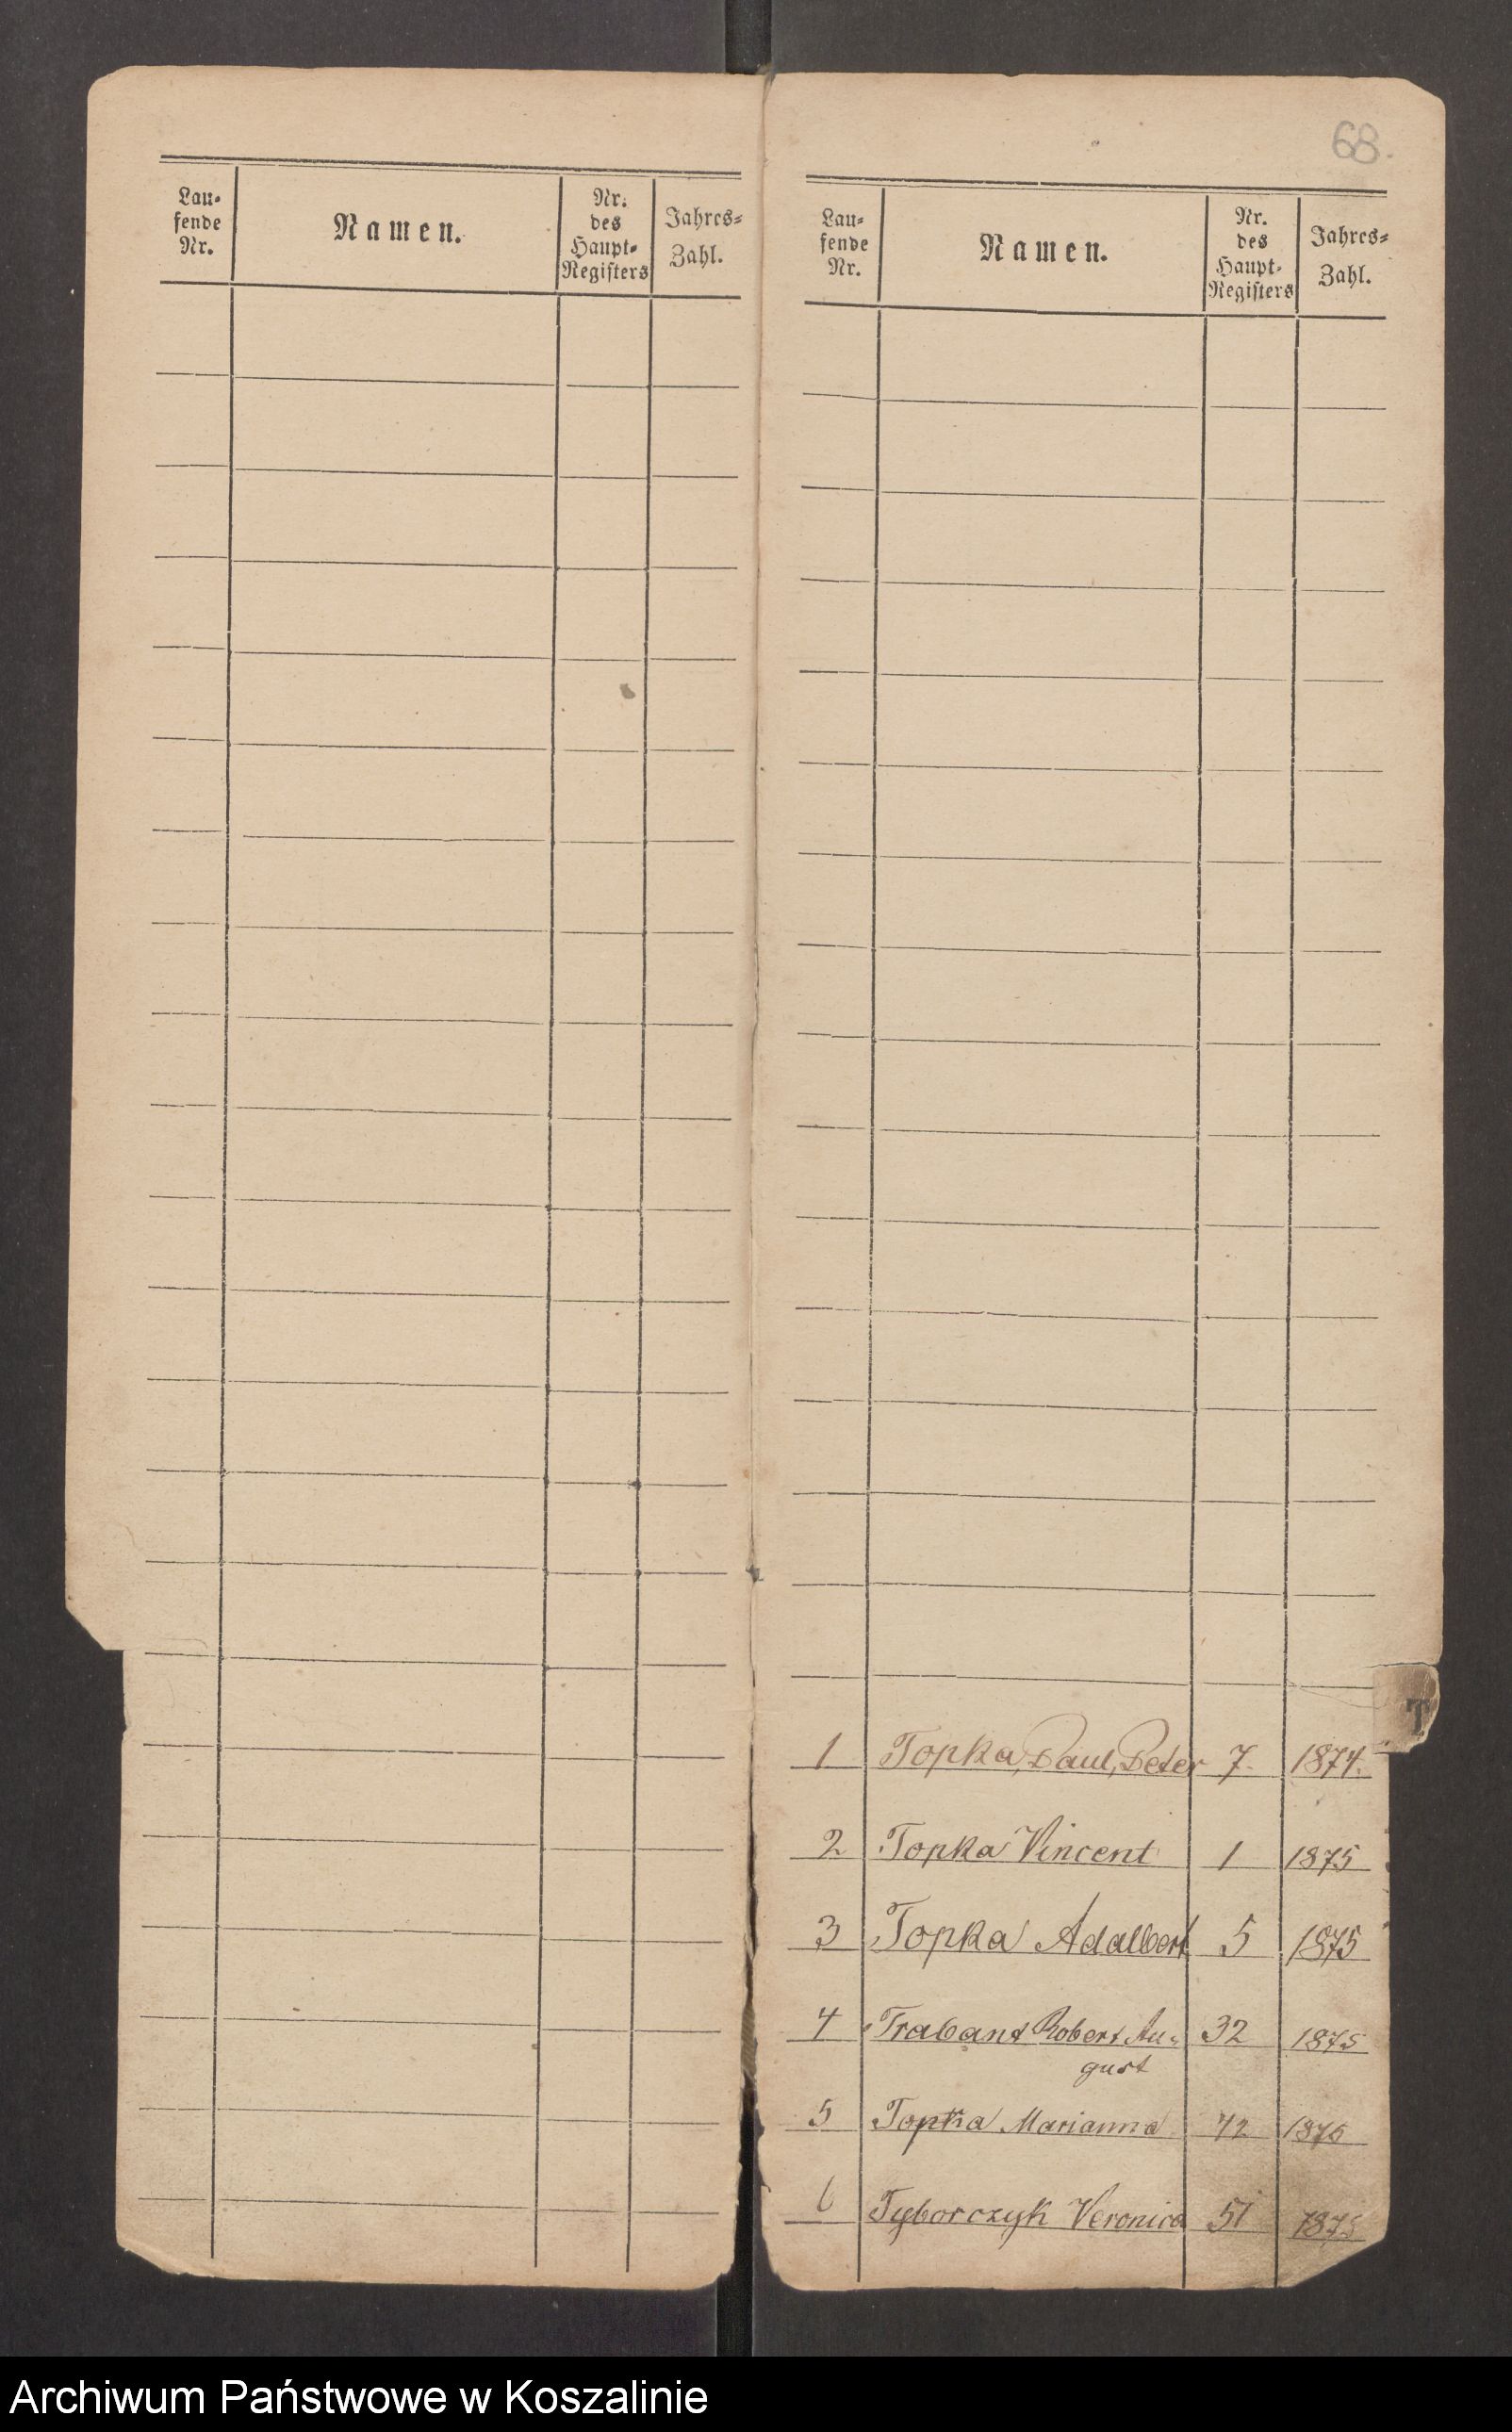 68.
Lau-
fende
Nr.
Namen.
Nr.
des
Haupt-
Registers
Jahres-
Zahl.
Lau-
fende
Nr.
Namen.
Nr.
des
Haupt-
Registers
Jahres-
Zahl.
T
1 Topka, Paul, Peter 7. 1874.
2 Topka Vincent 1 1875
3 Topka Adalbert 5 1875
4 Trabant Robert Au- 32 1875
gust
5 Topka Marianna 42 1875
6 Tyborczyk Veronica 51 1875
Archiwum Państwowe w Koszalinie